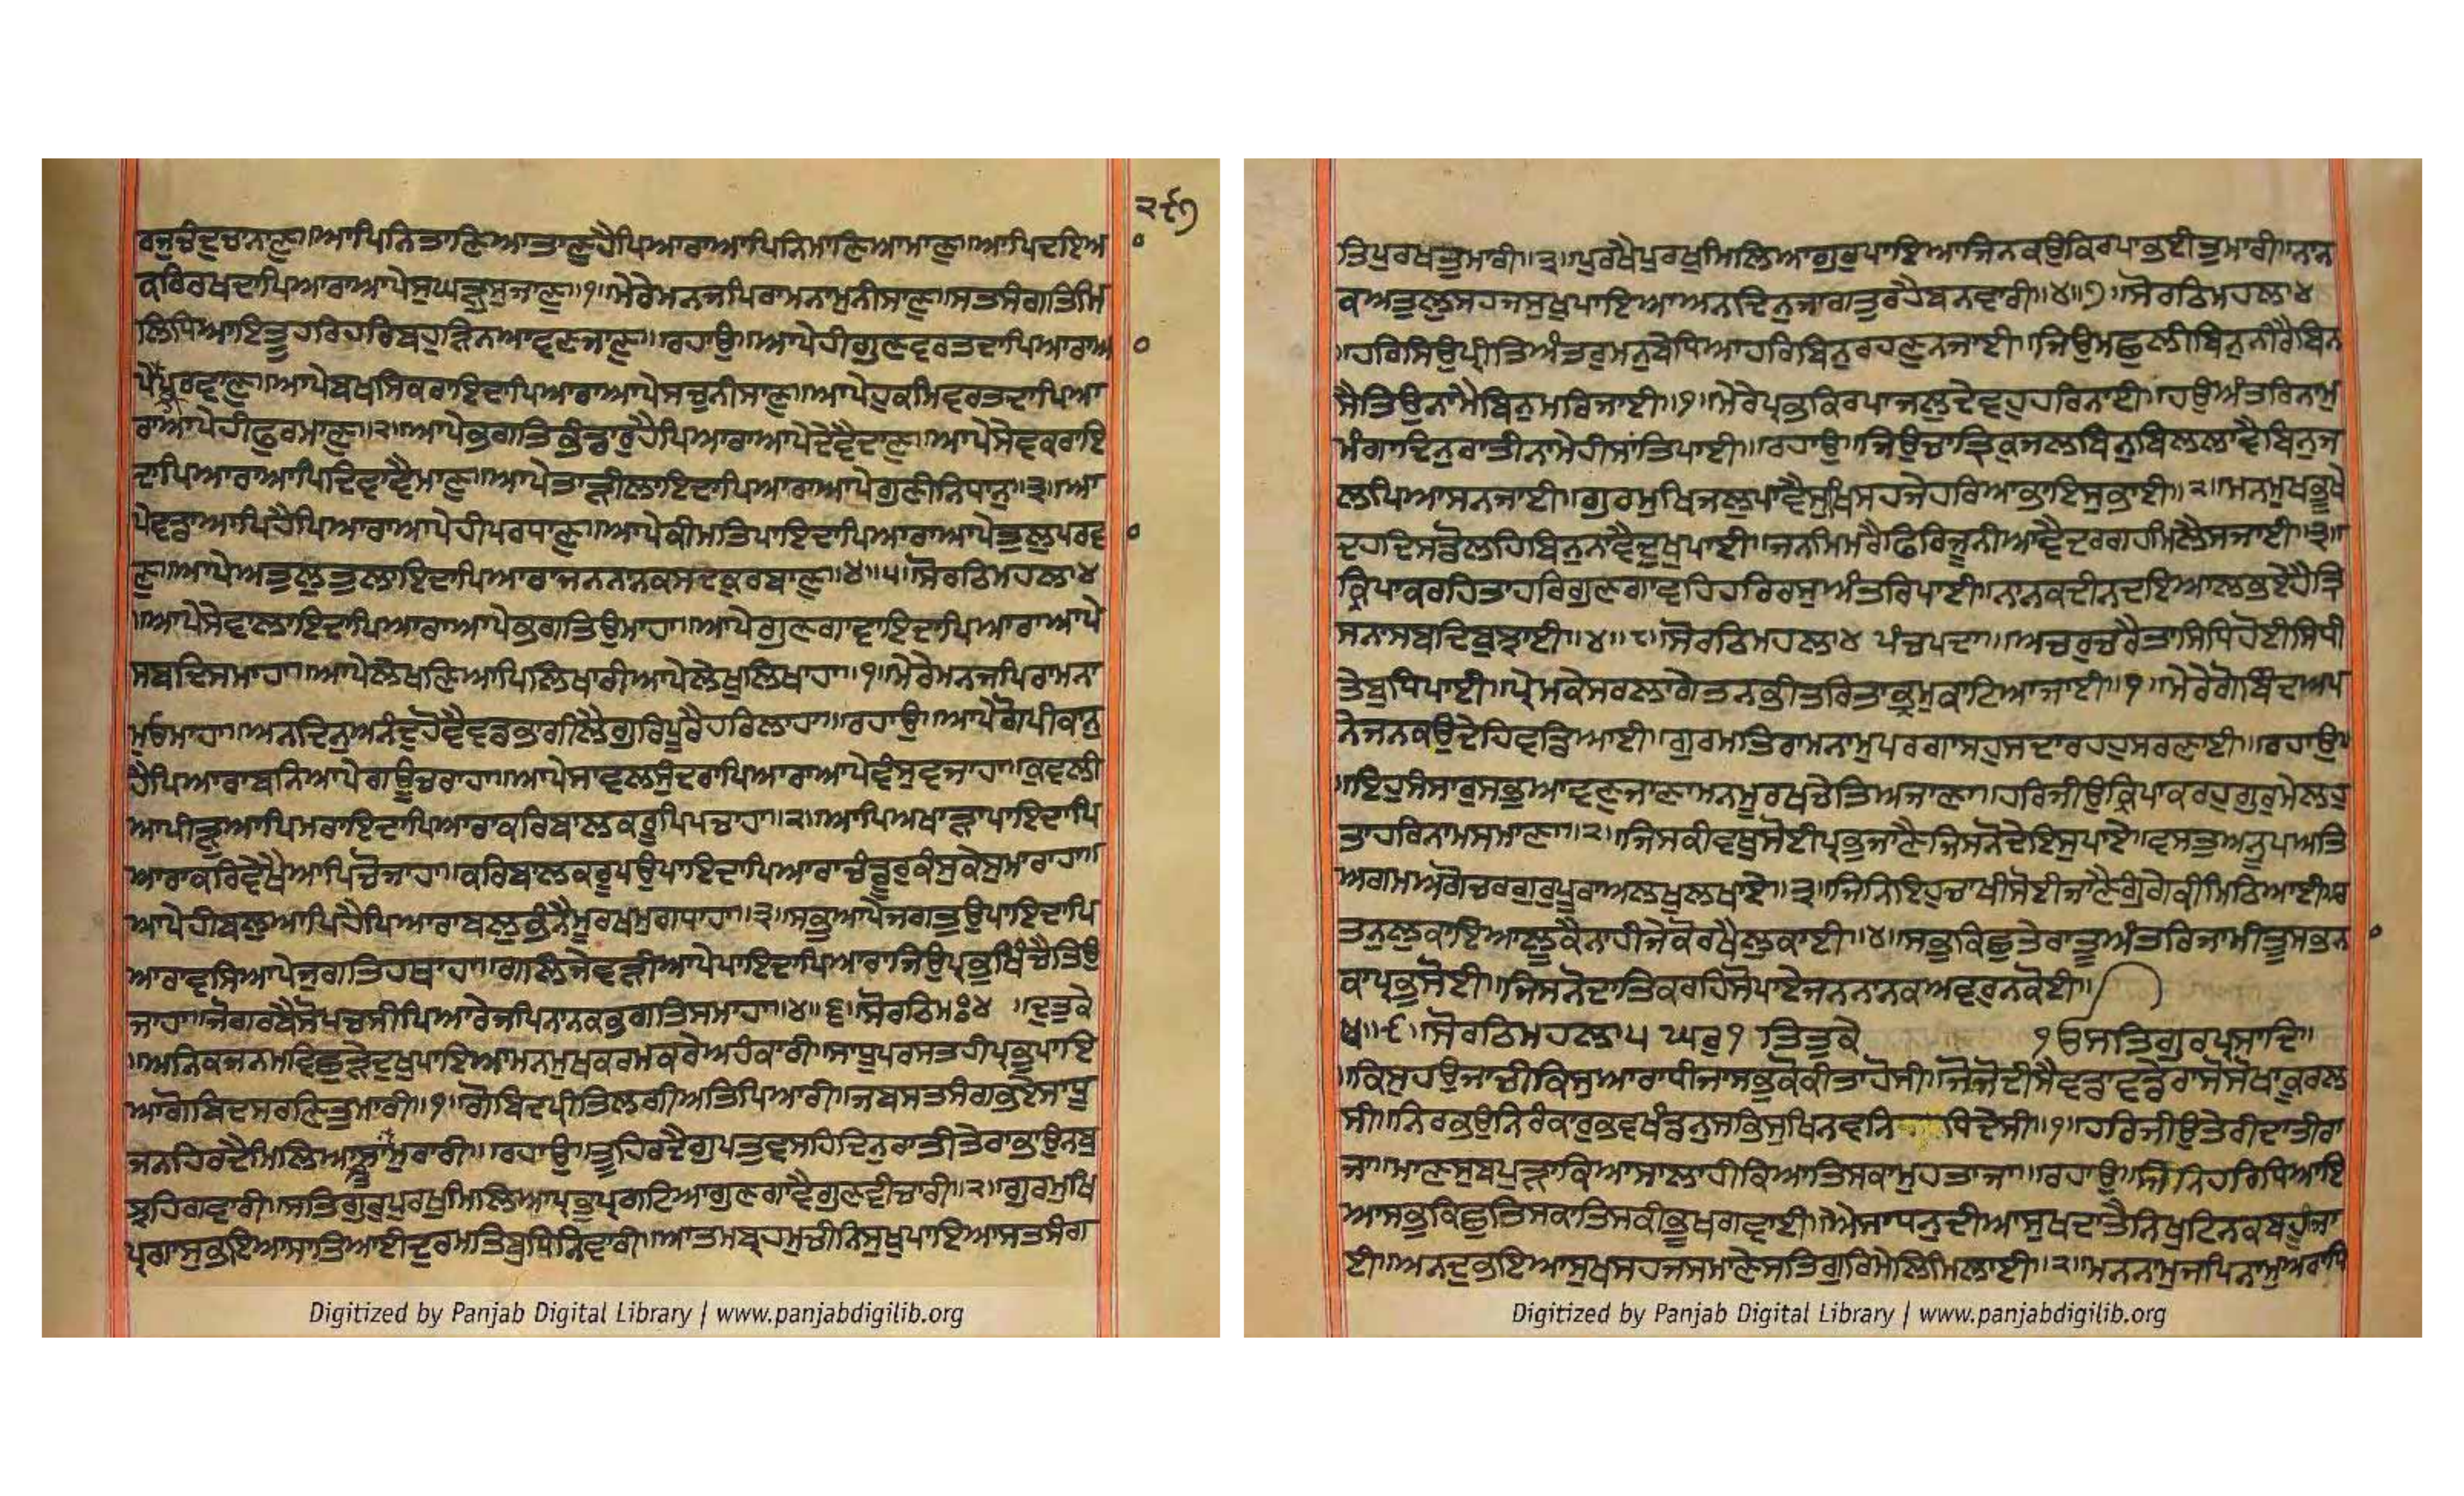 ੨੯੭
ਰਜੁਚੰਦੁਚਨਾਣੁ॥ਆਪਿਨਿਤਾਣਿਆਤਾਣੁਹੈਪਿਆਰਾਆਪਿਨਿਮਾਣਿਆਮਾਣੁ॥ਆਪਿਦਇਆ
ਕਰਿਰਖਦਾਪਿਆਰਾਆਪੇਸੁਘੜੁਸੁਜਾਣੁ॥੧॥ਮੇਰੇਮਨਜਪਿਰਾਮਨਾਮੁਨੀਸਾਣੁ॥ਸਤਸੰਗਤਿਮਿ
ਲਿਧਿਆਇਤੂਹਰਿਹਰਿਬਹੁੜਿਨਆਵਣਜਾਣੁ॥ਰਹਾਉ॥ਆਪੇਹੀਗੁਣਵਰਤਦਾਪਿਆਰਾਆ
ਪੇਪੁਰਵਾਣੁ॥ਆਪੇਬਖਸਿਕਰਾਇਦਾਪਿਆਰਾਆਪੇਸਚੁਨੀਸਾਣੁ॥ਆਪੇਹੁਕਮਿਵਰਤਦਾਪਿਆ
ਰਾਆਪੇਹੀਫੁਰਮਾਣੁ॥੨॥ਆਪੇਭਗਤਿਭੰਡਾਰੁਹੈਪਿਆਰਾਆਪੇਦੇਵੈਦਾਣੁ॥ਆਪੇਸੇਵਕਰਾਇ
ਦਾਪਿਆਰਾਆਪਿਦਿਵਾਵੈਮਾਣੁ॥ਆਪੇਤਾੜੀਲਾਇਦਾਪਿਆਰਾਆਪੇਗੁਣੀਨਿਧਾਨੁ॥੩॥ਆ
ਪੇਵਡਾਆਪਿਹੈਪਿਆਰਾਆਪੇਹੀਪਰਧਾਣੁ॥ਆਪੇਕੀਮਤਿਪਾਇਦਾਪਿਆਰਾਆਪੇਤੁਲੁਪਰਵਾ
ਣੁ॥ਆਪੇਅਤੁਲੁਤੁਲਾਇਦਾਪਿਆਰਾਜਨਨਾਨਕਸਦਕੁਰਬਾਣੁ॥੪॥੫॥ਸੋਰਠਿਮਹਲਾ੪
॥ਆਪੇਸੇਵਾਲਾਇਦਾਪਿਆਰਾਆਪੇਭਗਤਿਉਮਾਹਾ॥ਆਪੇਗੁਣਗਾਵਾਇਦਾਪਿਆਰਾਆਪੇ
ਸਬਦਿਸਮਾਹਾ॥ਆਪੇਲੇਖਣਿਆਪਿਲਿਖਾਰੀਆਪੇਲੇਖੁਲਿਖਾਹਾ॥੧॥ਮੇਰੇਮਨਜਪਿਰਾਮਨਾ
ਮੁਓਮਾਹਾ॥ਅਨਦਿਨੁਅਨੰਦੁਹੋਵੈਵਡਭਾਗੀਲੈਗੁਰਿਪੂਰੈਹਰਿਲਾਹਾ॥ਰਹਾਉ॥ਆਪੇਗੋਪੀਕਾਨੁ
ਹੈਪਿਆਰਾਬਨਿਆਪੇਗਊਚਰਾਹਾ॥ਆਪੇਸਾਵਲਸੁੰਦਰਾਪਿਆਰਾਆਪੇਵੰਸੁਵਜਾਹਾ॥ਕੁਵਲੀ
ਆਪੀੜੁਆਪਿਮਰਾਇਦਾਪਿਆਰਾਕਰਿਬਾਲਕਰੂਪਿਪਚਾਹਾ॥੨॥ਆਪਿਅਖਾੜਾਪਾਇਦਾਪਿ
ਆਰਾਕਰਿਵੇਖੈਆਪਿਚੋਜਾਹਾ॥ਕਰਿਬਾਲਕਰੂਪਉਪਾਇਦਾਪਿਆਰਾਚੰਡੂਰੁਕੰਸੁਕੇਸੁਮਾਰਾਹਾ॥
ਆਪੇਹੀਬਲੁਆਪਿਹੈਪਿਆਰਾਬਲੁਭੰਨੈਮੂਰਖਮੁਗਧਾਹਾ॥੩॥ਸਭੁਆਪੇਜਗਤੁਉਪਾਇਦਾਪਿ
ਆਰਾਵਸਿਆਪੇਜੁਗਤਿਹਥਾਹਾ॥ਗਲਿਜੇਵੜੀਆਪੇਪਾਇਦਾਪਿਆਰਾਜਿਉਪ੍ਰਭੁਖਿੰਚੈਤਿਉ
ਜਾਹਾ॥ਜੋਗਰਬੈਸੋਪਚਸੀਪਿਆਰੇਜਪਿਨਾਨਕਭਗਤਿਸਮਾਹਾ॥੪॥੬॥ਸੋਰਠਿਮਃ੪ ॥ਦੁਤੁਕੇ
॥ਅਨਿਕਜਨਮਵਿਛੁੜੇਦੁਖੁਪਾਇਆਮਨਮੁਖਕਰਮਕਰੇਅਹੰਕਾਰੀ॥ਸਾਧੂਪਰਸਤਹੀਪ੍ਰਭੁਪਾਇ
ਆਗੋਬਿਦਸਰਣਿਤੁਮਾਰੀ॥੧॥ਗੋਬਿਦਪ੍ਰੀਤਿਲਗੀਅਤਿਪਿਆਰੀ॥ਜਬਸਤਸੰਗਭਏਸਾਧੂ
ਜਨਹਿਰਦੈਮਿਲਿਆਸਾਂਤਮੁਰਾਰੀ॥ਰਹਾਉ॥ਤੂਹਿਰਦੈਗੁਪਤੁਵਸਹਿਦਿਨੁਰਾਤੀਤੇਰਾਭਾਉਨਬੁ
ਝਹਿਗਵਾਰੀ॥ਸਤਿਗੁਰੁਪੁਰਖੁਮਿਲਿਆਪ੍ਰਭੁਪ੍ਰਗਟਿਆਗੁਣਗਾਵੈਗੁਣਵੀਚਾਰੀ॥੨॥ਗੁਰਮੁਖਿ
ਪ੍ਰਗਾਸੁਭਇਆਸਾਤਿਆਈਦੁਰਮਤਿਬੁਧਿਨਿਵਾਰੀ॥ਆਤਮਬ੍ਰਹਮੁਚੀਨਿਸੁਖੁਪਾਇਆਸਤਸੰਗ
ਤਿਪੁਰਖਤੁਮਾਰੀ॥੩॥ਪੁਰਖੈਪੁਰਖੁਮਿਲਿਆਗੁਰੁਪਾਇਆਜਿਨਕਉਕਿਰਪਾਭਈਤੁਮਾਰੀ॥ਨਾਨ
ਕਅਤੁਲੁਸਹਜਸੁਖੁਪਾਇਆਅਨਦਿਨੁਜਾਗਤੁਰਹੈਬਨਵਾਰੀ॥੪॥੭॥ਸੋਰਠਿਮਹਲਾ੪
॥ਹਰਿਸਿਉਪ੍ਰੀਤਿਅੰਤਰੁਮਨੁਬੇਧਿਆਹਰਿਬਿਨੁਰਹਣੁਨਜਾਈ॥ਜਿਉਮਛੁਲੀਬਿਨੁਨੀਰੈਬਿਨ
ਸੈਤਿਉਨਾਮੈਬਿਨੁਮਰਿਜਾਈ॥੧॥ਮੇਰੇਪ੍ਰਭਕਿਰਪਾਜਲੁਦੇਵਹੁਹਰਿਨਾਈ॥ਹਉਅੰਤਰਿਨਾਮੁ
ਮੰਗਾਦਿਨੁਰਾਤੀਨਾਮੇਹੀਸਾਂਤਿਪਾਈ॥ਰਹਾਉ॥ਜਿਉਚਾਤ੍ਰਿਕੁਜਲਬਿਨੁਬਿਲਲਾਵੈਬਿਨੁਜ
ਲਪਿਆਸਨਜਾਈ॥ਗੁਰਮੁਖਿਜਲੁਪਾਵੈਸੁਖਿਸਹਜੇਹਰਿਆਭਾਇਸੁਭਾਈ॥੨॥ਮਨਮੁਖਭੂਖੇ
ਦਹਦਿਸਡੋਲਹਿਬਿਨੁਨਾਵੈਦੁਖੁਪਾਈ॥ਜਨਮਿਮਰੈਫਿਰਿਜੂਨੀਆਵੈਦਰਗਹਮਿਲੈਸਜਾਈ॥੩॥
ਕ੍ਰਿਪਾਕਰਹਿਤਾਹਰਿਗੁਣਗਾਵਹਿਹਰਿਰਸੁਅੰਤਰਿਪਾਈ॥ਨਾਨਕਦੀਨਦਇਆਲਭਏਹੈਤ੍ਰਿ
ਸਨਾਸਬਦਿਬੁਝਾਈ॥੪॥੮॥ਸੋਰਠਿਮਹਲਾ੪ ਪੰਚਪਦਾ॥ਅਚਰੁਚਰੈਤਾਸਿਧਿਹੋਈਸਿਧੀ
ਤੇਬੁਧਿਪਾਈ॥ਪ੍ਰੇਮਕੇਸਰਲਾਗੇਤਨਭੀਤਰਿਤਾਭ੍ਰਮੁਕਾਟਿਆਜਾਈ॥੧॥ਮੇਰੇਗੋਬਿਦਾਅਪ
ਨੇਜਨਕਉਦੇਹਿਵਡਿਆਈ॥ਗੁਰਮਤਿਰਾਮਨਾਮੁਪਰਗਾਸਹੁਸਦਾਰਹਹੁਸਰਣਾਈ॥ਰਹਾਉ
॥ਇਹੁਸੰਸਾਰੁਸਭੁਆਵਣੁਜਾਣਾਮਨਮੂਰਖਚੇਤਿਅਜਾਣਾ॥ਹਰਿਜੀਉਕ੍ਰਿਪਾਕਰਹੁਗੁਰੁਮੇਲਹੁ
ਤਾਹਰਿਨਾਮਸਮਾਣਾ॥੨॥ਜਿਸਕੀਵਥੁਸੋਈਪ੍ਰਭੁਜਾਣੈਜਿਸਨੋਦੇਇਸੁਪਾਏ॥ਵਸਤੁਅਨੂਪਅਤਿ
ਅਗਮਅਗੋਚਰਗੁਰਪੂਰਾਅਲਖੁਲਖਾਏ॥੩॥ਜਿਨਿਇਹਚਾਖੀਸੋਈਜਾਣੈਗੂੰਗੇਕੀਮਿਠਿਆਈ॥ਰ
ਤਨੁਲੁਕਾਇਆਲੂਕੈਨਾਹੀਜੇਕੋਰਖੈਲੁਕਾਈ॥੪॥ਸਭੁਕਿਛੁਤੇਰਾਤੂਅੰਤਰਿਜਾਮੀਤੂਸਭਨ
ਕਾਪ੍ਰਭੁਸੋਈ॥ਜਿਸਨੋਦਾਤਿਕਰਹਿਸੋਪਾਏਜਨਨਾਨਕਅਵਰੁਨਕੋਈ॥
੫॥੯॥ਸੋਰਠਿਮਹਲਾ੫ ਘਰੁ੧ ਤਿਤੁਕੇ ੧ਓਸਤਿਗੁਰਪ੍ਰਸਾਦਿ॥
॥ਕਿਸੁਹਉਜਾਚੀਕਿਸੁਆਰਾਧੀਜਾਸਭੁਕੋਕੀਤਾਹੋਸੀ॥ਜੋਜੋਦੀਸੈਵਡਾਵਡੇਰਾਸੋਸੋਖਾਕੂਰਲ
ਸੀ॥ਨਿਰਭਉਨਿਰੰਕਾਰੁਭਵਖੰਡਨੁਸਭਿਸੁਖਨਵਨਿ ਧਿਦੇਸੀ॥੧॥ਹਰਿਜੀਉਤੇਰੀਦਾਤੀਰਾ
ਜਾ॥ਮਾਣਸੁਬਪੁੜਾਕਿਆਸਾਲਾਹੀਕਿਆਤਿਸਕਾਮੁਹਤਾਜਾ॥ਰਹਾਉ॥ਜਿਨਿਹਰਿਧਿਆਇ
ਆਸਭੁਕਿਛੁਤਿਸਕਾਤਿਸਕੀਭੂਖਗਵਾਈ॥ਐਸਾਧਨੁਦੀਆਸੁਖਦਾਤੈਨਿਖੁਟਿਨਕਬਹੂੰਜਾ
ਈ॥ਅਨਦੁਭਇਆਸੁਖਸਹਜਸਮਾਣੇਸਤਿਗੁਰਿਮੇਲਿਮਿਲਾਈ॥੨॥ਮਨਨਾਮੁਜਪਿਨਾਮੁਆਰਾਧਿ
Digitized by Panjab Digital Library | www.panjabdigilib.org
Digitized by Panjab Digital Library | www.panjabdigilib.org